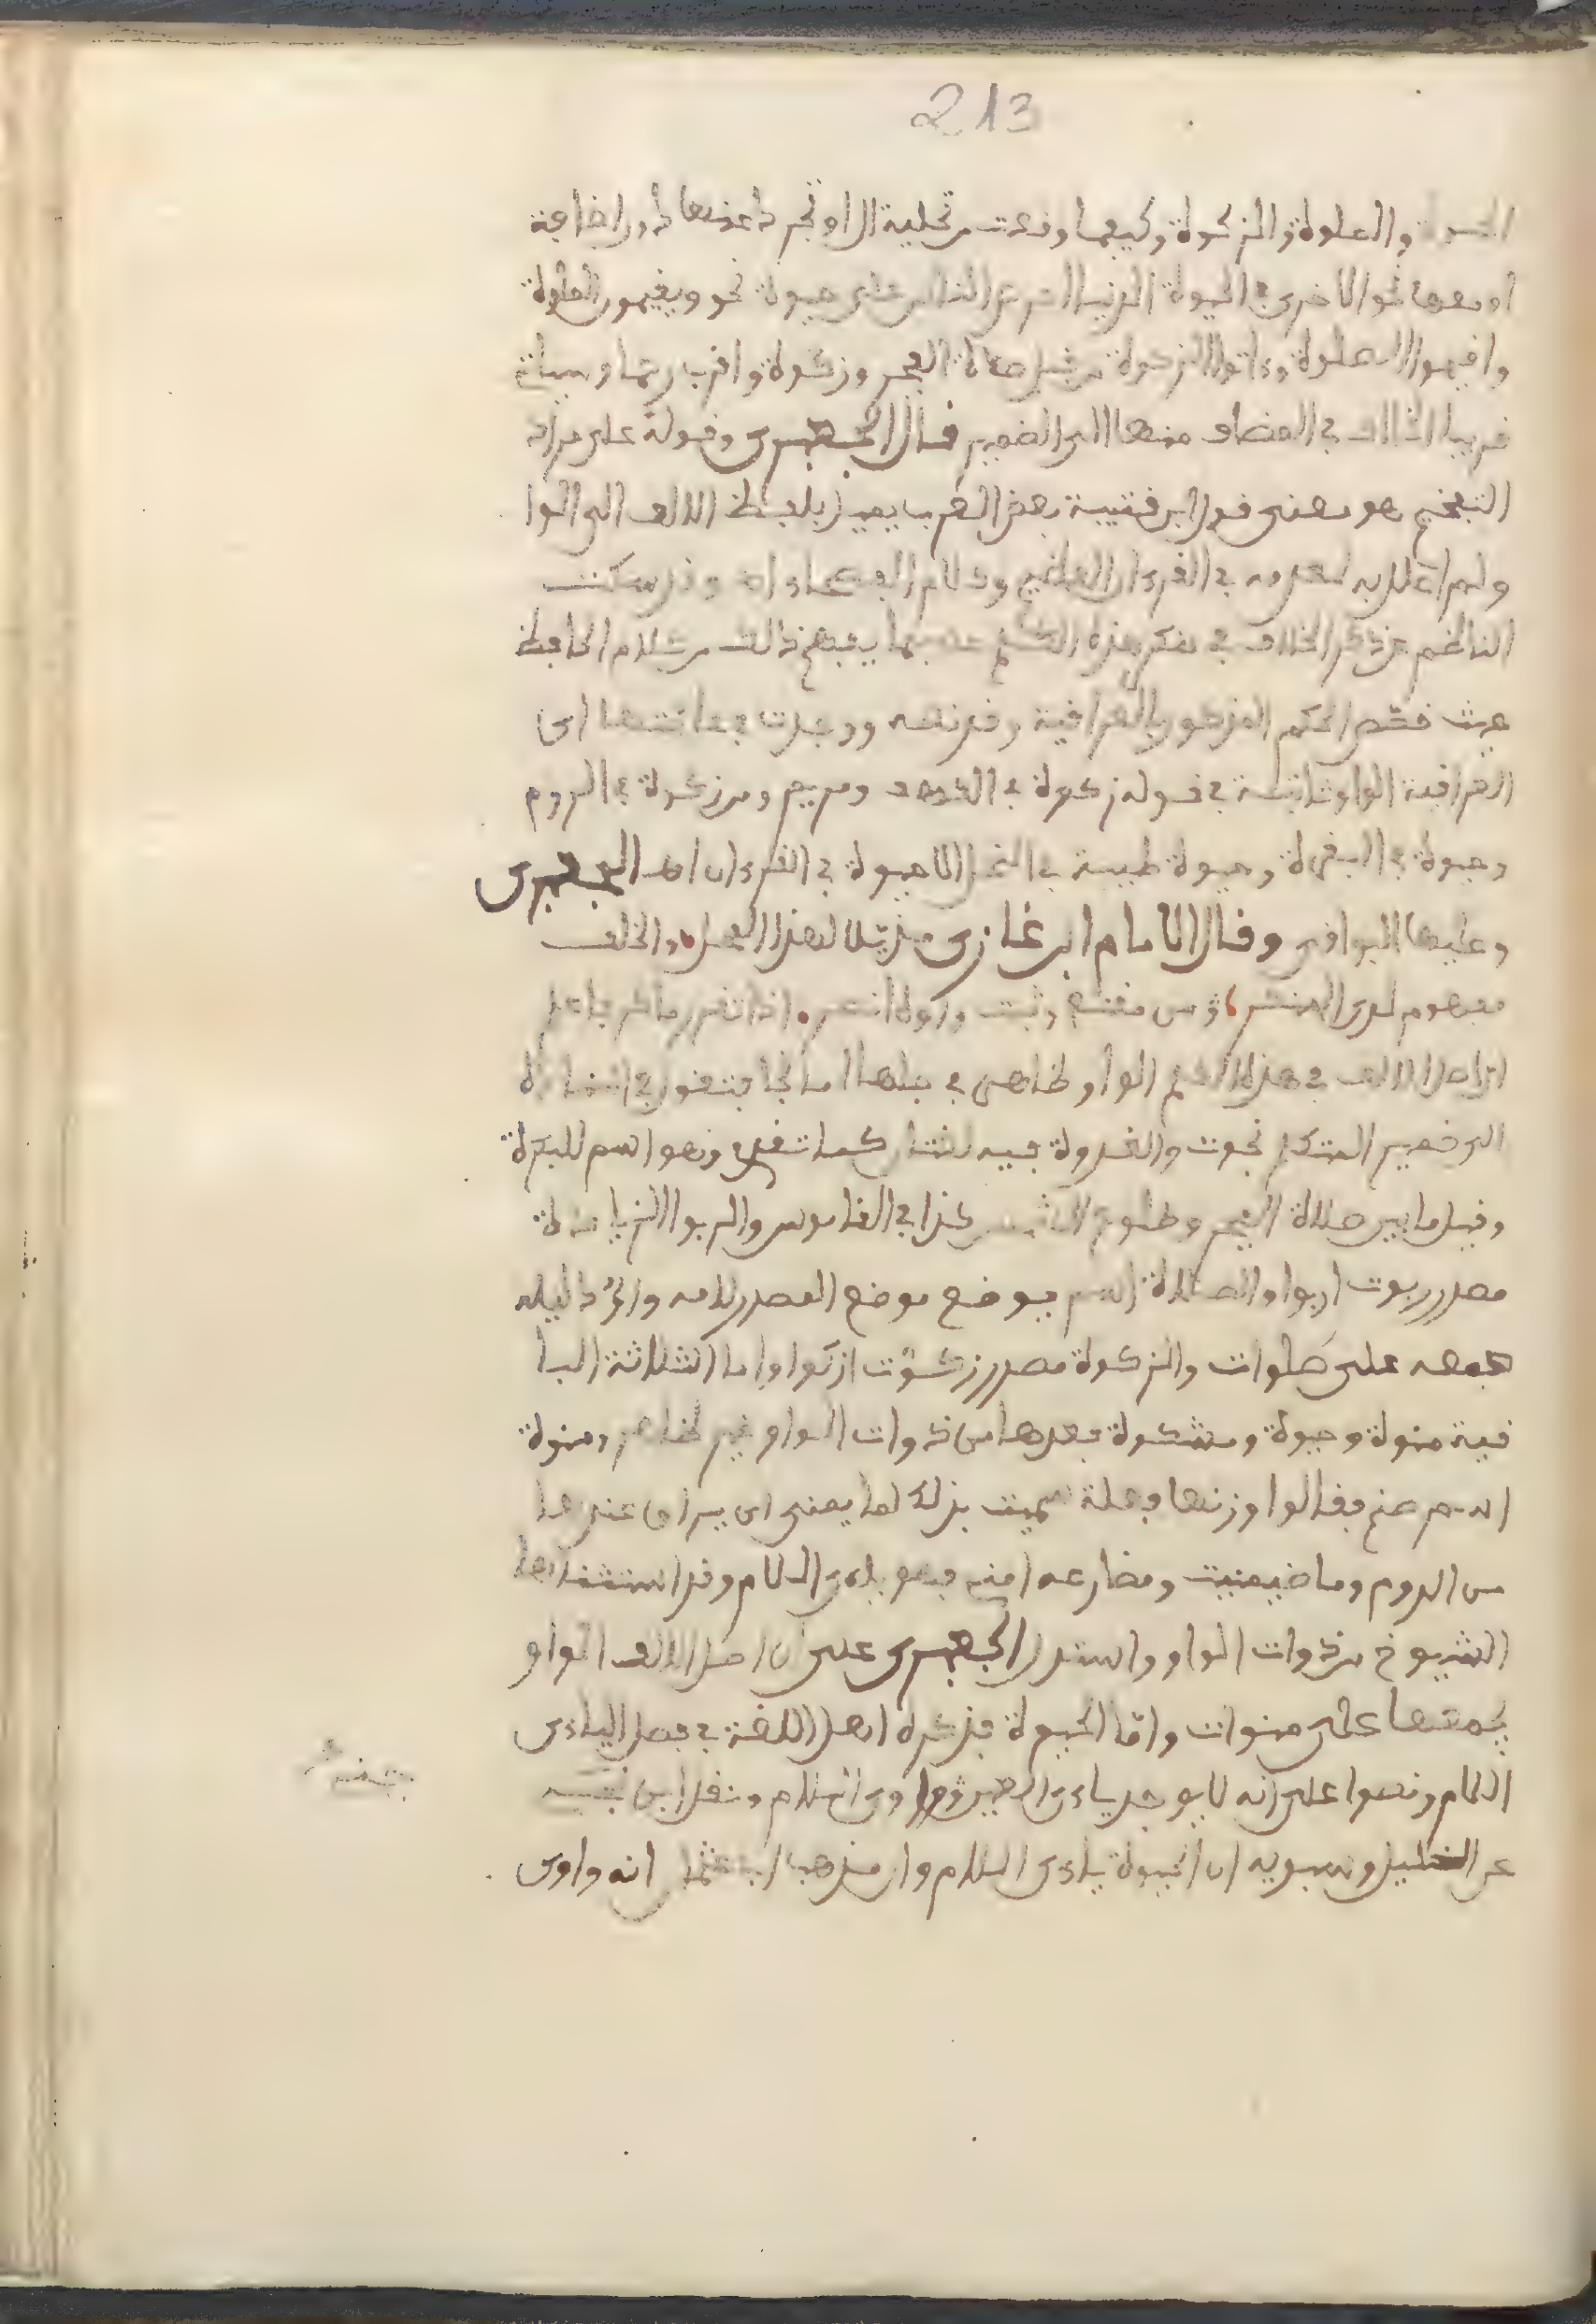 213
والصلوة والزكوة وكيفما وقعت من تحلية ال او تجردها عنها دون اضافة
او معها نحو الاخرى في الحيوة الدنيا احرص الناس على حيوة نحو ويقيمون الصلوة
واقيموا الصلوة وءاتوا الزكوة من قبل صلاة الفجر وزكوة واقرب رحما وسياتي
قريبا الخلاف في المضاف منها الى الضمير قال الجعبري وقوله على مراد
التفخيم هو معنى قول ابن قتيبة بعض العرب يميل بلفظ الالف الى الواو
ولم اعلل به لعدمه في القرءان العظيم وكلام الفصحاء اه وقد سكت
الناظم عن ذكر الخلاف في هذه الكلم مما يفهم ذلك من كلام الحافظ
حيث خصص الحكم المذكور بالعراقية وقد نصه ووجدت في عامتها اي
العراقية الواو ثابتة في قوله زكوة في الكهف ومريم ومن زكوة في الروم
وحيوة في البقرة وحيوة طيبة في النحل ولا حيوة في الفرقان اه الجعبري
وعليها البواقي وقال الامام ابن غازي مذيلا لهذا المحل والخلف
مفهوم لدى المنكر من مقنع وثبت واولا اشهر اذا تقرر ما مر فاعلم
ان اصل الالف في هذه الكلم الواو ظاهر في جلها اما النجاة فتقول في اسناده
الى ضمير المتكلم نجوت والغدوة فيه لغتان كما تقدم وهو اسم للبكرة
وقيل ما بين صلاة الفجر وطلوع الشمس كذا في القاموس والربوا الزيادة
مصدر ربوت اربوا والصلاة اسم يوضع موضع المصدر لامه واو دليله
جمعه على صلوات والزكوة مصدر زكوت ازكوا واما الثلاثة البا
قية منوة وحيوة ومشكوة فعدها من ذوات الواو غير ظاهر ومنوة
اسم صنم فقالوا وزنها فعلة سميت بذلك لما يمنى اي يراق عندها
من الدم وماضيه منيت ومضارعه امني فهو يائي اللام وقد استثناها
الشيوخ من ذوات الواو واستدل الجعبري على ان اصل الالف الواو
بجمعها على منوات واما الحيوة فذكره اهل اللغة في فصل اليائي
اللام ونصوا على انه لا يوجد يائي العين واوي اللام ونقل ابن
عن الخليل وسيبويه ان الحيوة يائي اللام وان مذهب انه واوي